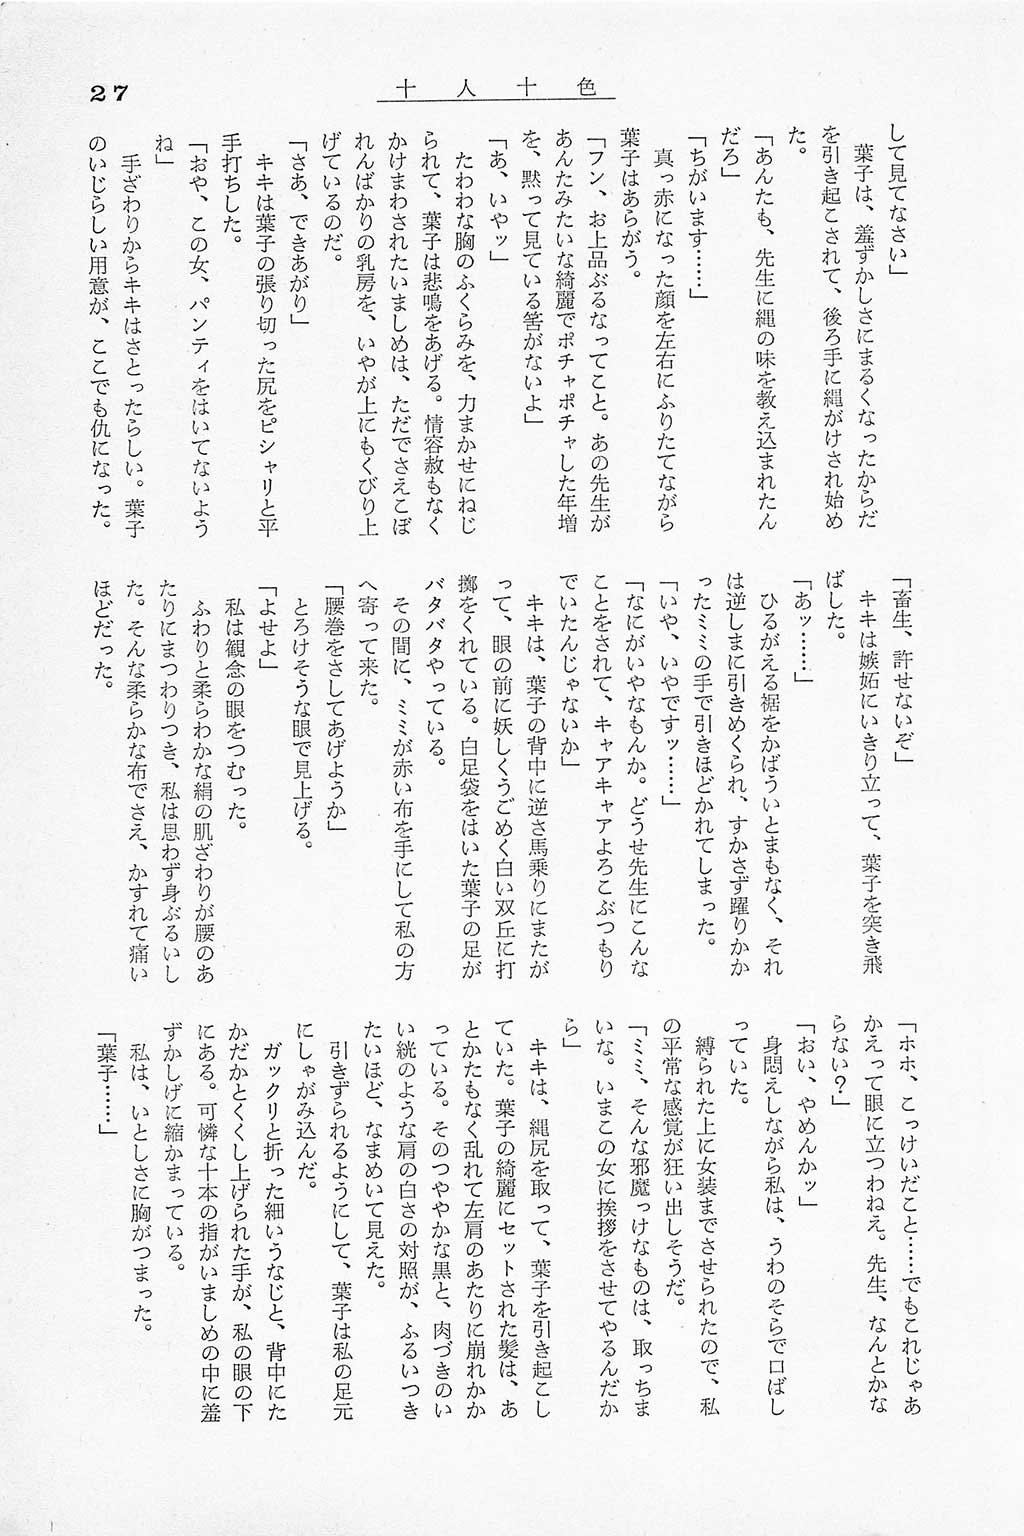 27
十人十色
して見てなさい」
　葉子は、羞ずかしさにまるくなったからだ
を引き起こされて、後ろ手に縄がけされ始め
た。
「あんたも、先生に縄の味を教え込まれたん
だろ」
「ちがいます……」
　真っ赤になった顔を左右にふりたてながら
葉子はあらがう。
「フン、お上品ぶるなってこと。あの先生が
あんたみたいな綺麗でポチャポチャした年増
を、黙って見ている筈がないよ」
「あ、いやッ」
　たわわな胸のふくらみを、力まかせにねじ
られて、葉子は悲鳴をあげる。情容赦もなく
かけまわされたいましめは、ただでさえこぼ
れんばかりの乳房を、いやが上にもくびり上
げているのだ。
「さあ、できあがり」
　キキは葉子の張り切った尻をピシャリと平
手打ちした。
「おや、この女、パンティをはいてないよう
ね」
　手ざわりからキキはさとったらしい。葉子
のいじらしい用意が、ここでも仇になった。
「畜生、許せないぞ」
　キキは嫉妬にいきり立って、葉子を突き飛
ばした。
「あッ……」
　ひるがえる裾をかばういとまもなく、それ
は逆しまに引きめくられ、すかさず躍りかか
ったミミの手で引きほどかれてしまった。
「いや、いやですッ……」
「なにがいやなもんか。どうせ先生にこんな
ことをされて、キャアキャアよろこぶつもり
でいたんじゃないか」
　キキは、葉子の背中に逆さ馬乗りにまたが
って、眼の前に妖しくうごめく白い双丘に打
擲をくれている。白足袋をはいた葉子の足が
バタバタやっている。
　その間に、ミミが赤い布を手にして私の方
へ寄って来た。
「腰巻をさしてあげようか」
　とろけそうな眼で見上げる。
「よせよ」
　私は観念の眼をつむった。
　ふわりと柔らわかな絹の肌ざわりが腰のあ
たりにまつわりつき、私は思わず身ぶるいし
た。そんな柔らかな布でさえ、かすれて痛い
ほどだった。
「ホホ、こっけいだこと……でもこれじゃあ
かえって眼に立つわねえ。先生、なんとかな
らない？」
「おい、やめんかッ」
　身悶えしながら私は、うわのそらで口ばし
っていた。
　縛られた上に女装までさせられたので、私
の平常な感覚が狂い出しそうだ。
「ミミ、そんな邪魔っけなものは、取っちま
いな。いまこの女に挨拶をさせてやるんだか
ら」
　キキは、縄尻を取って、葉子を引き起こし
ていた。葉子の綺麗にセットされた髪は、あ
とかたもなく乱れて左肩のあたりに崩れかか
っている。そのつややかな黒と、肉づきのい
い絖のような肩の白さの対照が、ふるいつき
たいほど、なまめいて見えた。
　引きずられるようにして、葉子は私の足元
にしゃがみ込んだ。
　ガックリと折った細いうなじと、背中にた
かだかとくくし上げられた手が、私の眼の下
にある。可憐な十本の指がいましめの中に羞
ずかしげに縮かまっている。
　私は、いとしさに胸がつまった。
「葉子……」